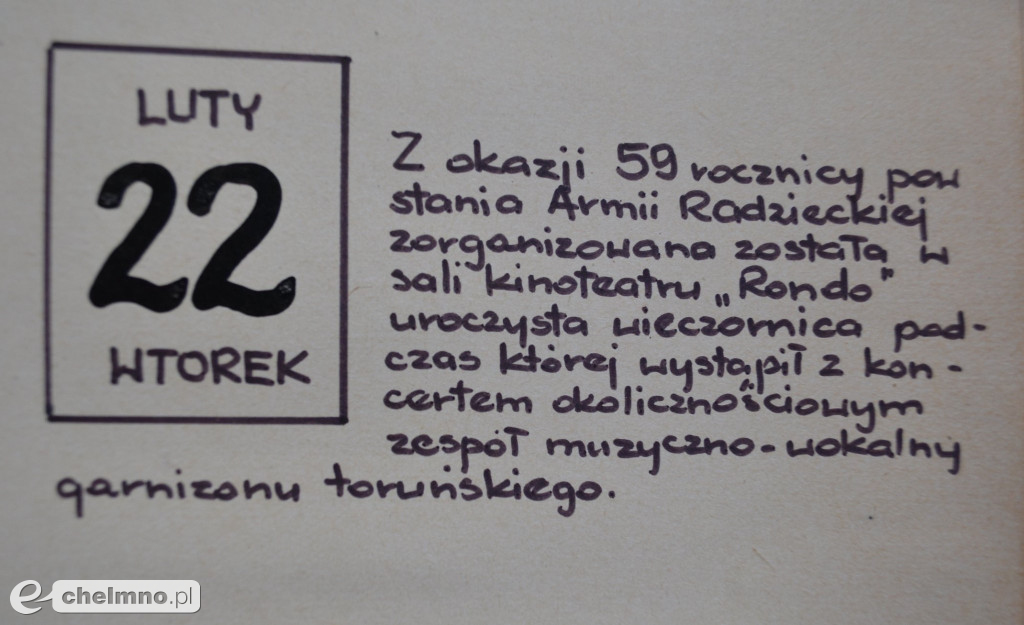 LUTY
22
WTOREK
Z okazji 59 rocznicy pow
stania Armii Radzieckiej
zorganizowana została w
sali kinoteatru „Rondo”
uroczysta wieczornica pod-
czas której wystąpił z kon-
certem okolicznościowym
zespół muzyczno-wokalny
garnizonu toruńskiego.
e-chelmno.pl